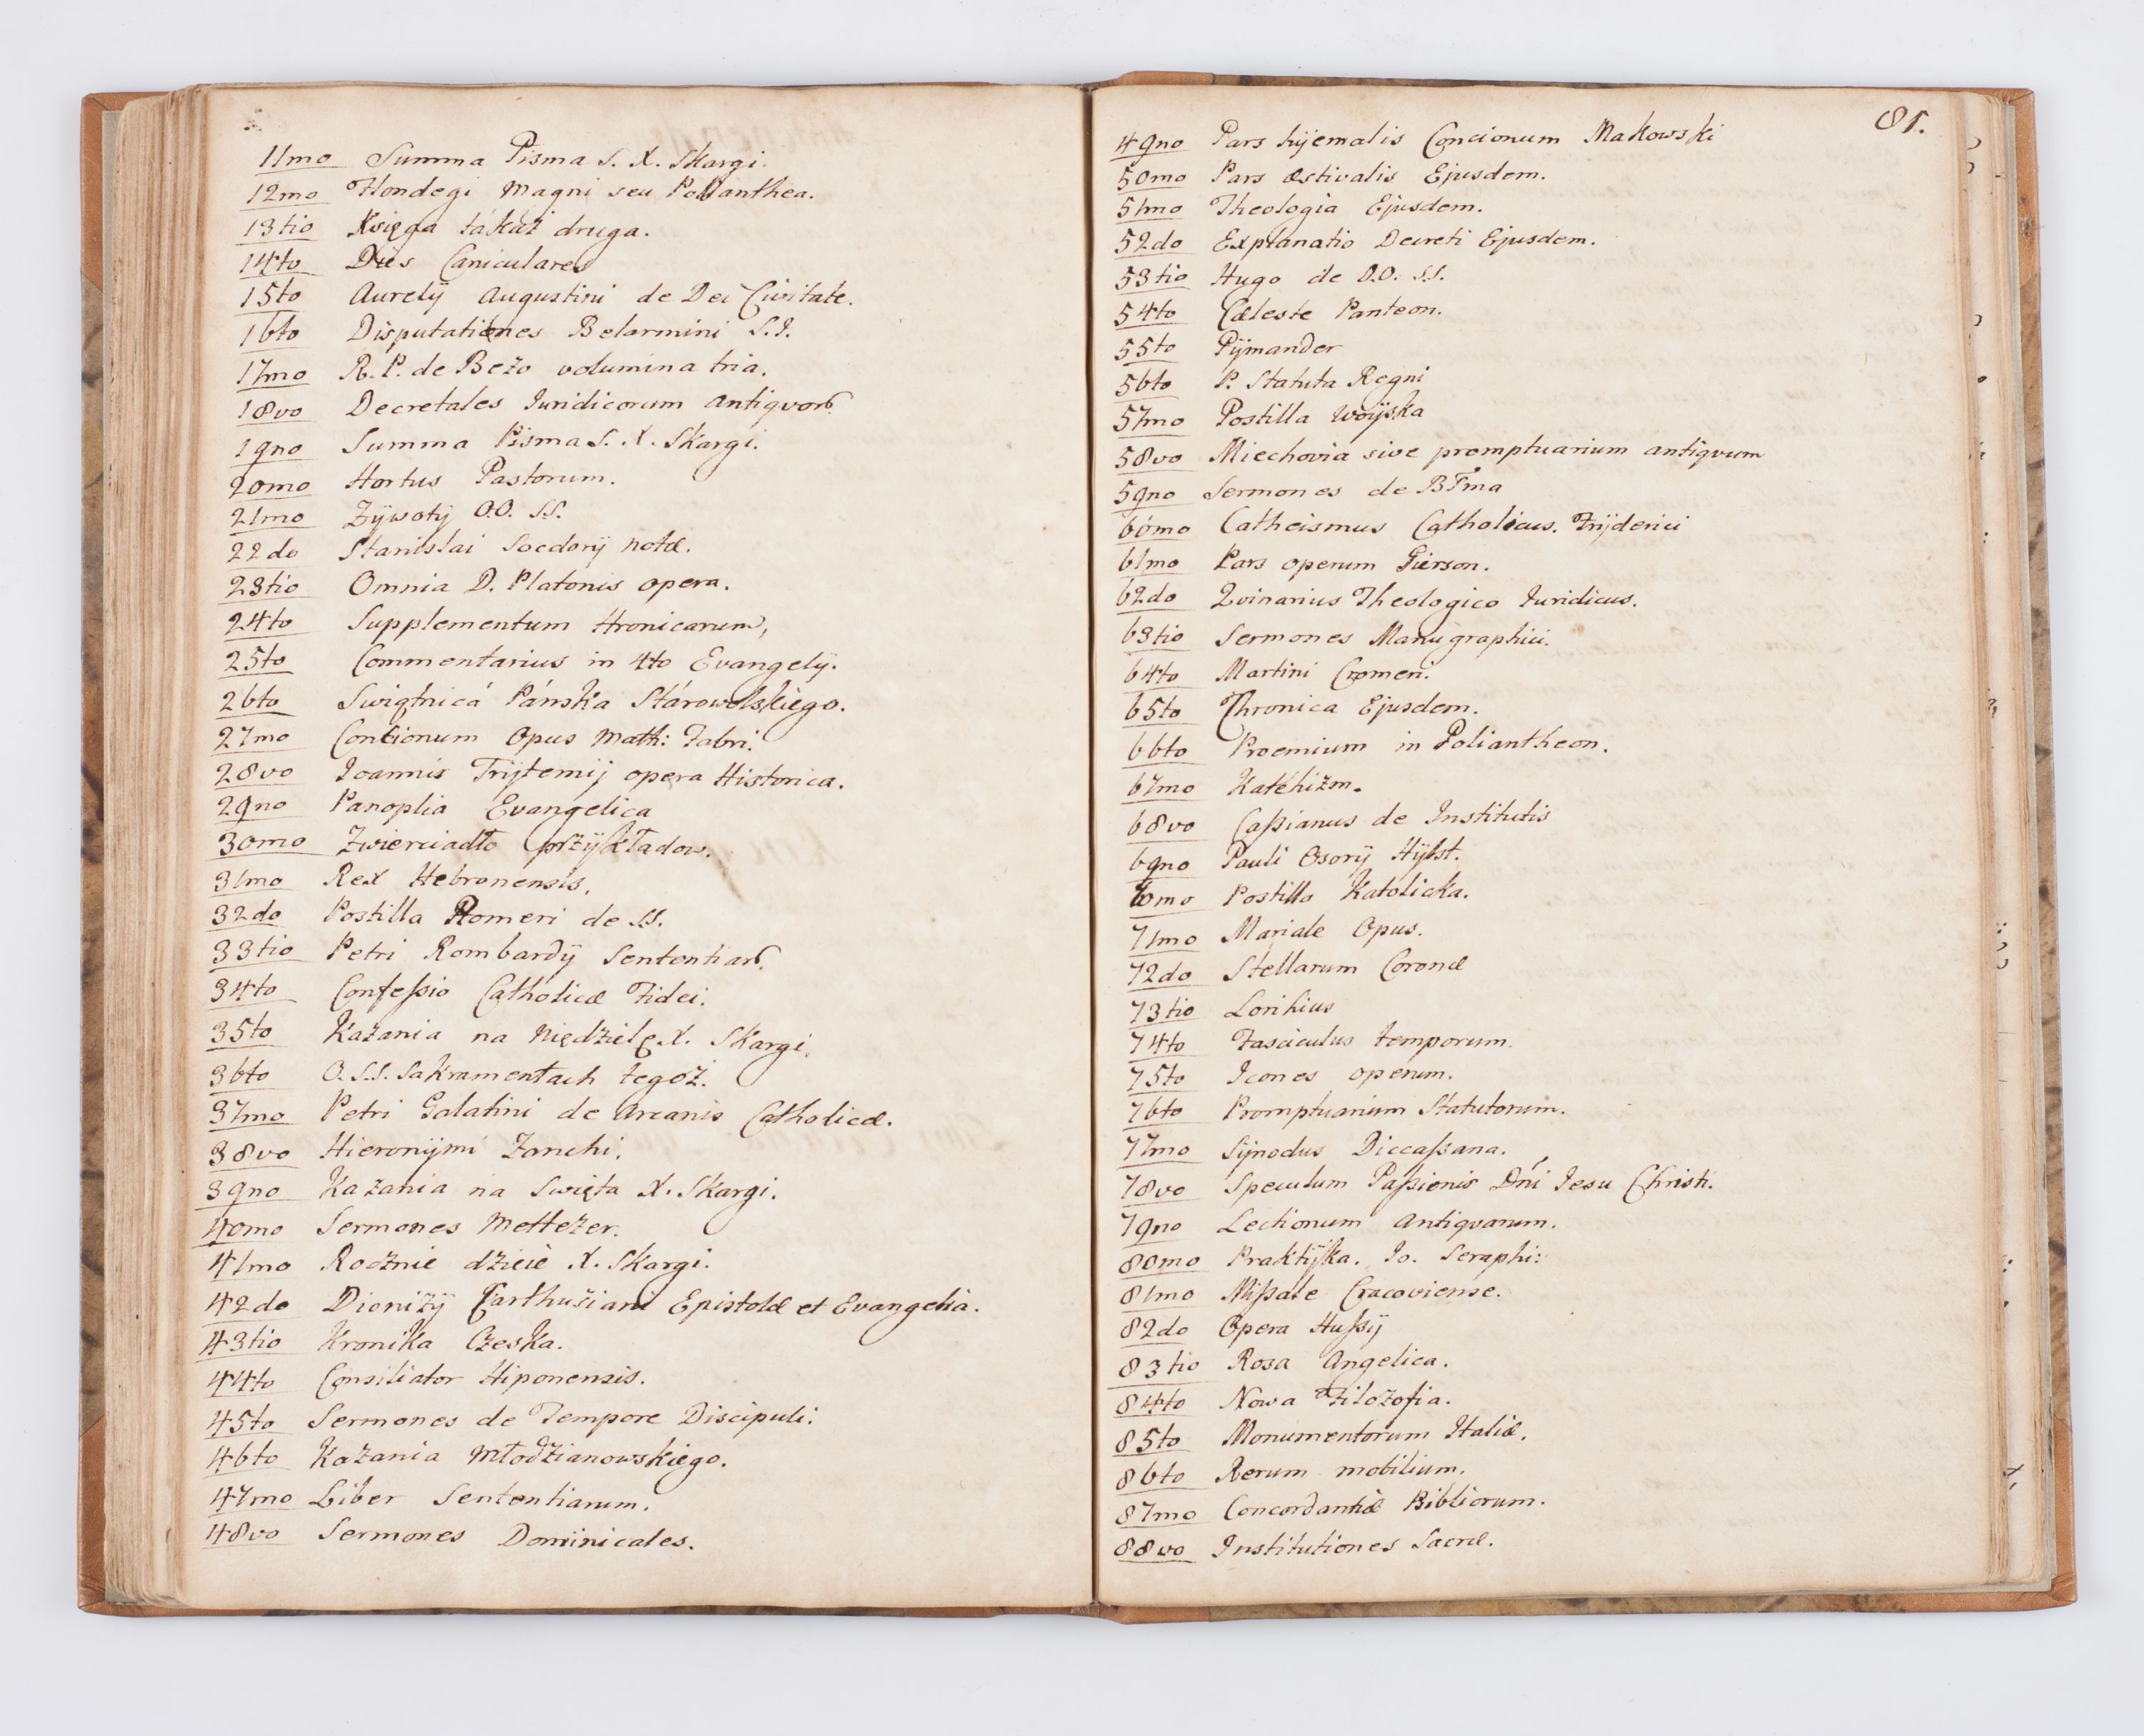 11mo Summa Pisma S. X. Skargi.
12mo Hondegi Magni seu Polianthea.
13tio Księga tákáż druga.
14to Dies Caniculares
15to Aurelÿ Augustini de Dei Civitate.
16to Disputationes Belarmini S.I.
17mo R. P. de Bezo volumina tria.
18vo Decretales Iuridicorum Antiquor.
19no Summa Pisma S. X. Skargi.
20mo Hortus Pastorum.
21mo Zÿwotÿ O.O. SS.
22do Stanislai Socdorÿ notæ.
23tio Omnia D. Platonis opera.
24to Supplementum Hronicarum,
25to Commentarius in 4to Evangelÿ.
26to Swiątnicá Pánska Stárowolskiego.
27mo Concionum Opus Math: Fabri.
28vo Ioannis Trÿtemij opera Historica.
29no Panoplia Evangelica
30mo Zwierciadło przÿkładow.
31mo Rex Hebronensis.
32do Postilla Romeri de SS.
33tio Petri Rombardÿ Sententiar.
34to Confeſsio Catholicæ Fidei.
35to Kazania na Niędzielę X. Skargi.
36to O. S.S. Sakramentach tegoż.
37mo Petri Galatini de Arcanis Catholicæ.
38vo Hieronÿmi Zanchi.
39no Kazania na Swięta X. Skargi.
40mo Sermones Meffezer.
41mo Rocznie dzieie X. Skargi.
42do Dionizÿ Carthuziani Epistolæ et Evangelia.
43tio Kronika Czeska.
44to Consiliator Hiponensis.
45to Sermones de Tempore Discipuli.
46to Kazania Młodzianowskiego.
47mo Liber Sententiarum.
48vo Sermones Dominicales.
81.
49no Pars hÿemalis Concionum Makowski
50mo Pars æstivalis Ejusdem.
51mo Theologia Ejusdem.
52do Explanatio Decreti Ejusdem.
53tio Hugo de O.O. S.S.
54to Cæleste Panteon.
55to Pÿmander
56to P. Statuta Regni
57mo Postilla Woÿska
58vo Miechovia sive promptuarium antiqvum
59no Sermones de BTma
60mo Catheismus Catholicus. Frÿderici
61mo Pars operum Gierson.
62do Qvinarius Theologico Iuridicus.
63tio Sermones Manugraphici.
64to Martini Cromeri.
65to Chronica Ejusdem.
66to Proemium in Poliantheon.
67mo Katehizm.
68vo Caſsianus de Institutis
69no Pauli Osorÿ Hÿst.
70mo Postilla Katolicka.
71mo Mariale Opus.
72do Stellarum Coronæ
73tio Lorihius
74to Fasciculus temporum.
75to Icones operum.
76to Promptuarium Statutorum.
77mo Sÿnodus Diecaſsana.
78vo Speculum Paſsionis Dńi Iesu Christi.
79no Lectionum Antiqvarum.
80mo Praktÿka. Io. Seraphi:
81mo Miſsale Cracoviense.
82do Opera Huſsÿ
83tio Rosa Angelica.
84to Nowa Filozofia.
85to Monumentorum Italiæ.
86to Rerum mobilium.
87mo Concordantiæ Bibliorum.
88vo Institutiones Sacræ.